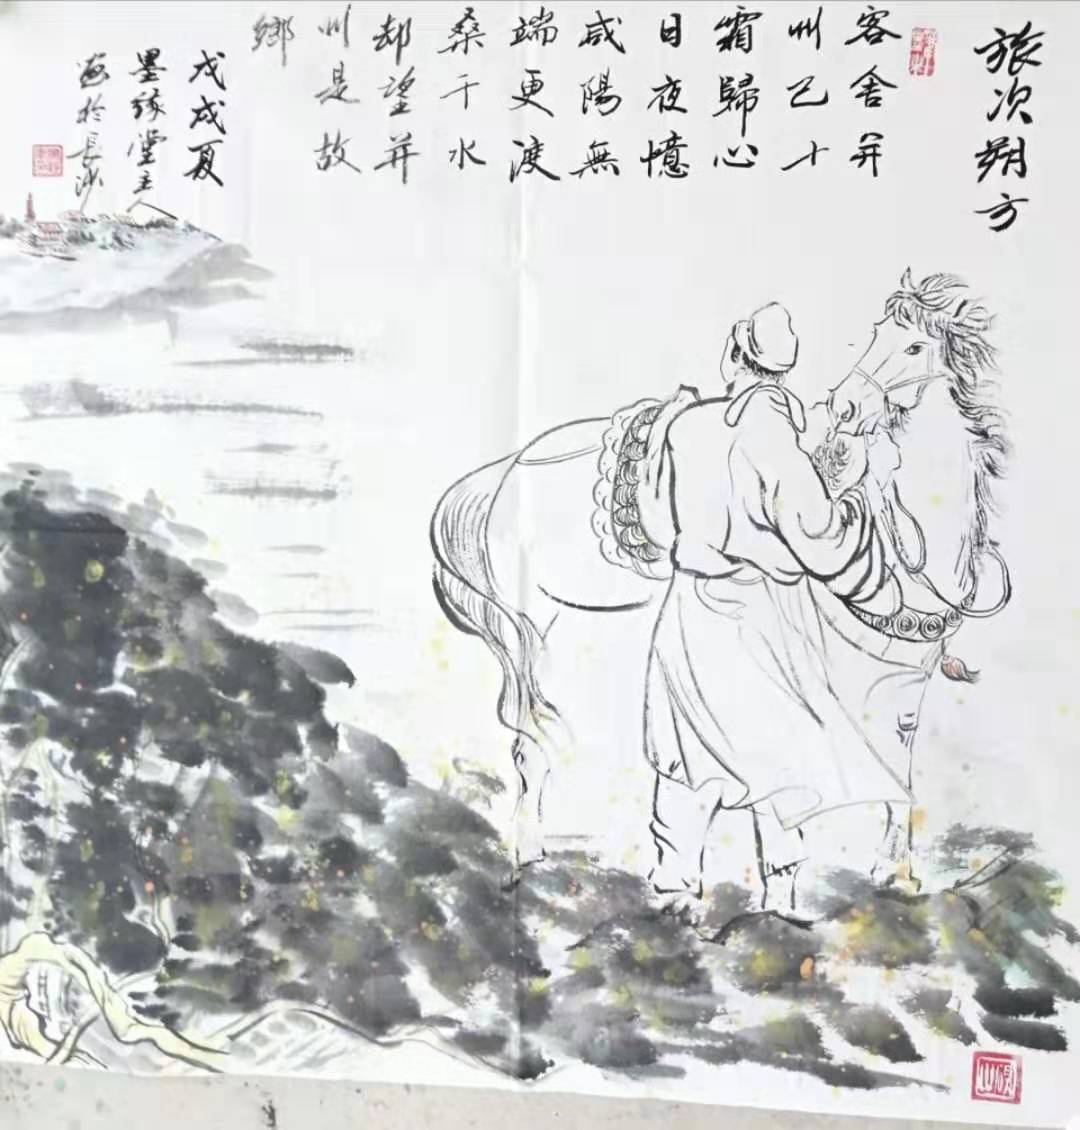 旅次朔方
客舍并
州已十
霜歸心
日夜憶
咸陽無
端更渡
桑干水
却望并
州是故
鄉
戊戌夏
墨緣堂主人
畫於長沙